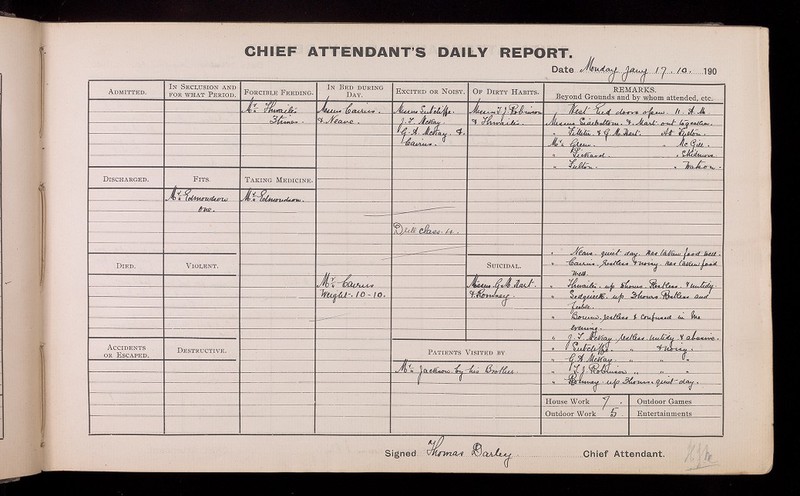 CHIEF ATTENDANT'S DAILY REPORT.
Date Monday Jany 17. 10. 190
ADMITTED.
IN SECLUSION AND FOR WHAT PERIOD.
FORCIBLE FEEDING.
IN BED DURING DAY.
EXCITED OR NOISY.
OF DIRTY HABITS.
REMARKS.
Beyond Grounds and by whom attended, etc.
Mr. Thwaite
3 times.
Messrs Cairns.
& Neave.
Messrs Sutcliffe.
J. F. McKay.
G. A. McKay. &.
Cairns.
Messrs T. J. Robinson
& Thwaite.
West End doors open 11. A. M
Messrs & Mart out together.
& G. M. Mart. At
Mr. Green " McGill.
" " Skidmore
" Fulton. " Watson.
DISCHARGED.
FITS.
TAKING MEDICINE.
Mr. Edmondson
one.
Mr. Edmondson.
Dull class. 10.
DIED.
VIOLENT.
SUICIDAL.
Mr. Cairns
Weight. 10-10.
Messrs G. M. Mart.
& Romney
" Neave. quiet day. has taken food well.
" Cairns. Restless & noisy. has taken food
well.
" Thwaite. up hours. Restless. & untidy.
" Sedgwick. up 3 hours. Restless and
feeble.
" Bourne. restless & confused in the
evening.
" J. F. McKay. restless. untidy & abusive.
" Sutcliffe. " & noisy.
" G. A. McKay. " " "
" T. J. Robinson " " "
" Romney up 3 hours. quiet day.
ACCIDENTS OR ESCAPED.
DESTRUCTIVE.
PATIENTS VISITED BY
Mr. Jackson by his Brother.
House Work 7.
Outdoor Games
Outdoor Work 5
Entertainments
Signed Thomas Darley Chief Attendant.